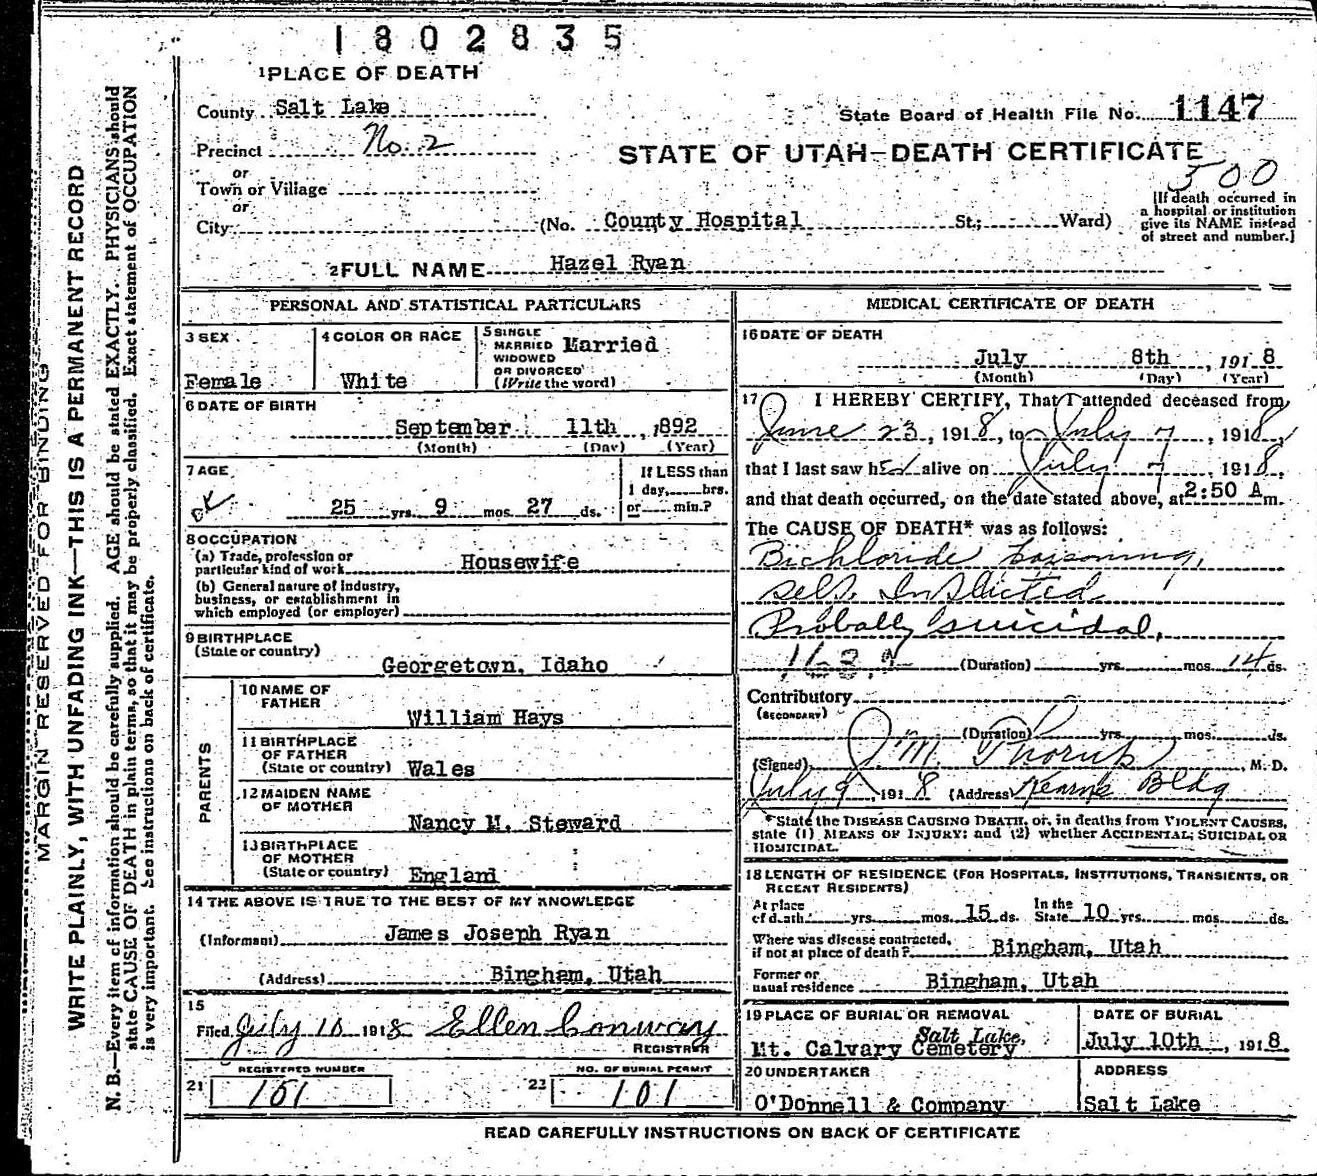 1802835
1 PLACE OF DEATH
County Salt Lake
State Board of Health File No. 1147
Precinct No. 2
STATE OF UTAH—DEATH CERTIFICATE
500
or
Town or Village
or
City (No. County Hospital St.; Ward)
[If death occurred in
a hospital or institution
give its NAME instead
of street and number.]
2 FULL NAME Hazel Ryan
PERSONAL AND STATISTICAL PARTICULARS
3 SEX
Female
4 COLOR OR RACE
White
5 SINGLE
MARRIED Married
WIDOWED
OR DIVORCED
(Write the word)
6 DATE OF BIRTH
September 11th, 1892
(Month) (Day) (Year)
7 AGE
25 yrs. 9 mos. 27 ds.
If LESS than
1 day, hrs.
or min.?
8 OCCUPATION
(a) Trade, profession or
particular kind of work Housewife
(b) General nature of industry,
business, or establishment in
which employed (or employer)
9 BIRTHPLACE
(State or country)
Georgetown, Idaho
PARENTS
10 NAME OF
FATHER
William Hays
11 BIRTHPLACE
OF FATHER
(State or country) Wales
12 MAIDEN NAME
OF MOTHER
Nancy M. Steward
13 BIRTHPLACE
OF MOTHER
(State or country) England
14 THE ABOVE IS TRUE TO THE BEST OF MY KNOWLEDGE
(Informant) James Joseph Ryan
(Address) Bingham, Utah
15
Filed July 10 1918 Ellen Conway
REGISTRAR
REGISTERED NUMBER
21 101
NO. OF BURIAL PERMIT
23 101
MEDICAL CERTIFICATE OF DEATH
16 DATE OF DEATH
July 8th, 1918
(Month) (Day) (Year)
17 I HEREBY CERTIFY, That I attended deceased from
June 23, 1918, to July 7, 1918,
that I last saw her alive on July 7 1918,
and that death occurred, on the date stated above, at 2:50 A m.
The CAUSE OF DEATH* was as follows:
Bichloride poisoning,
self inflicted
Probally suicidal,
(Duration) yrs. mos. 14 ds.
Contributory
(SECONDARY)
(Duration) yrs. mos. ds.
(Signed) J. M. M. D.
July 9, 1918 (Address) Kearns Bldg
*State the DISEASE CAUSING DEATH, or, in deaths from VIOLENT CAUSES,
state (1) MEANS OF INJURY; and (2) whether ACCIDENTAL, SUICIDAL OR
HOMICIDAL.
18 LENGTH OF RESIDENCE (FOR HOSPITALS, INSTITUTIONS, TRANSIENTS, OR
RECENT RESIDENTS)
At place
of death yrs. mos. 15 ds. In the
State 10 yrs. mos. ds.
Where was disease contracted,
if not at place of death? Bingham, Utah
Former or
usual residence Bingham, Utah
19 PLACE OF BURIAL OR REMOVAL
Salt Lake,
Mt. Calvary Cemetery
DATE OF BURIAL
July 10th, 1918.
20 UNDERTAKER
O'Donnell & Company
ADDRESS
Salt Lake
READ CAREFULLY INSTRUCTIONS ON BACK OF CERTIFICATE
MARGIN RESERVED FOR BINDING
WRITE PLAINLY, WITH UNFADING INK—THIS IS A PERMANENT RECORD
N. B.—Every item of information should be carefully supplied. AGE should be stated EXACTLY. PHYSICIANS should
state CAUSE OF DEATH in plain terms, so that it may be properly classified. Exact statement of OCCUPATION
is very important. See instructions on back of certificate.